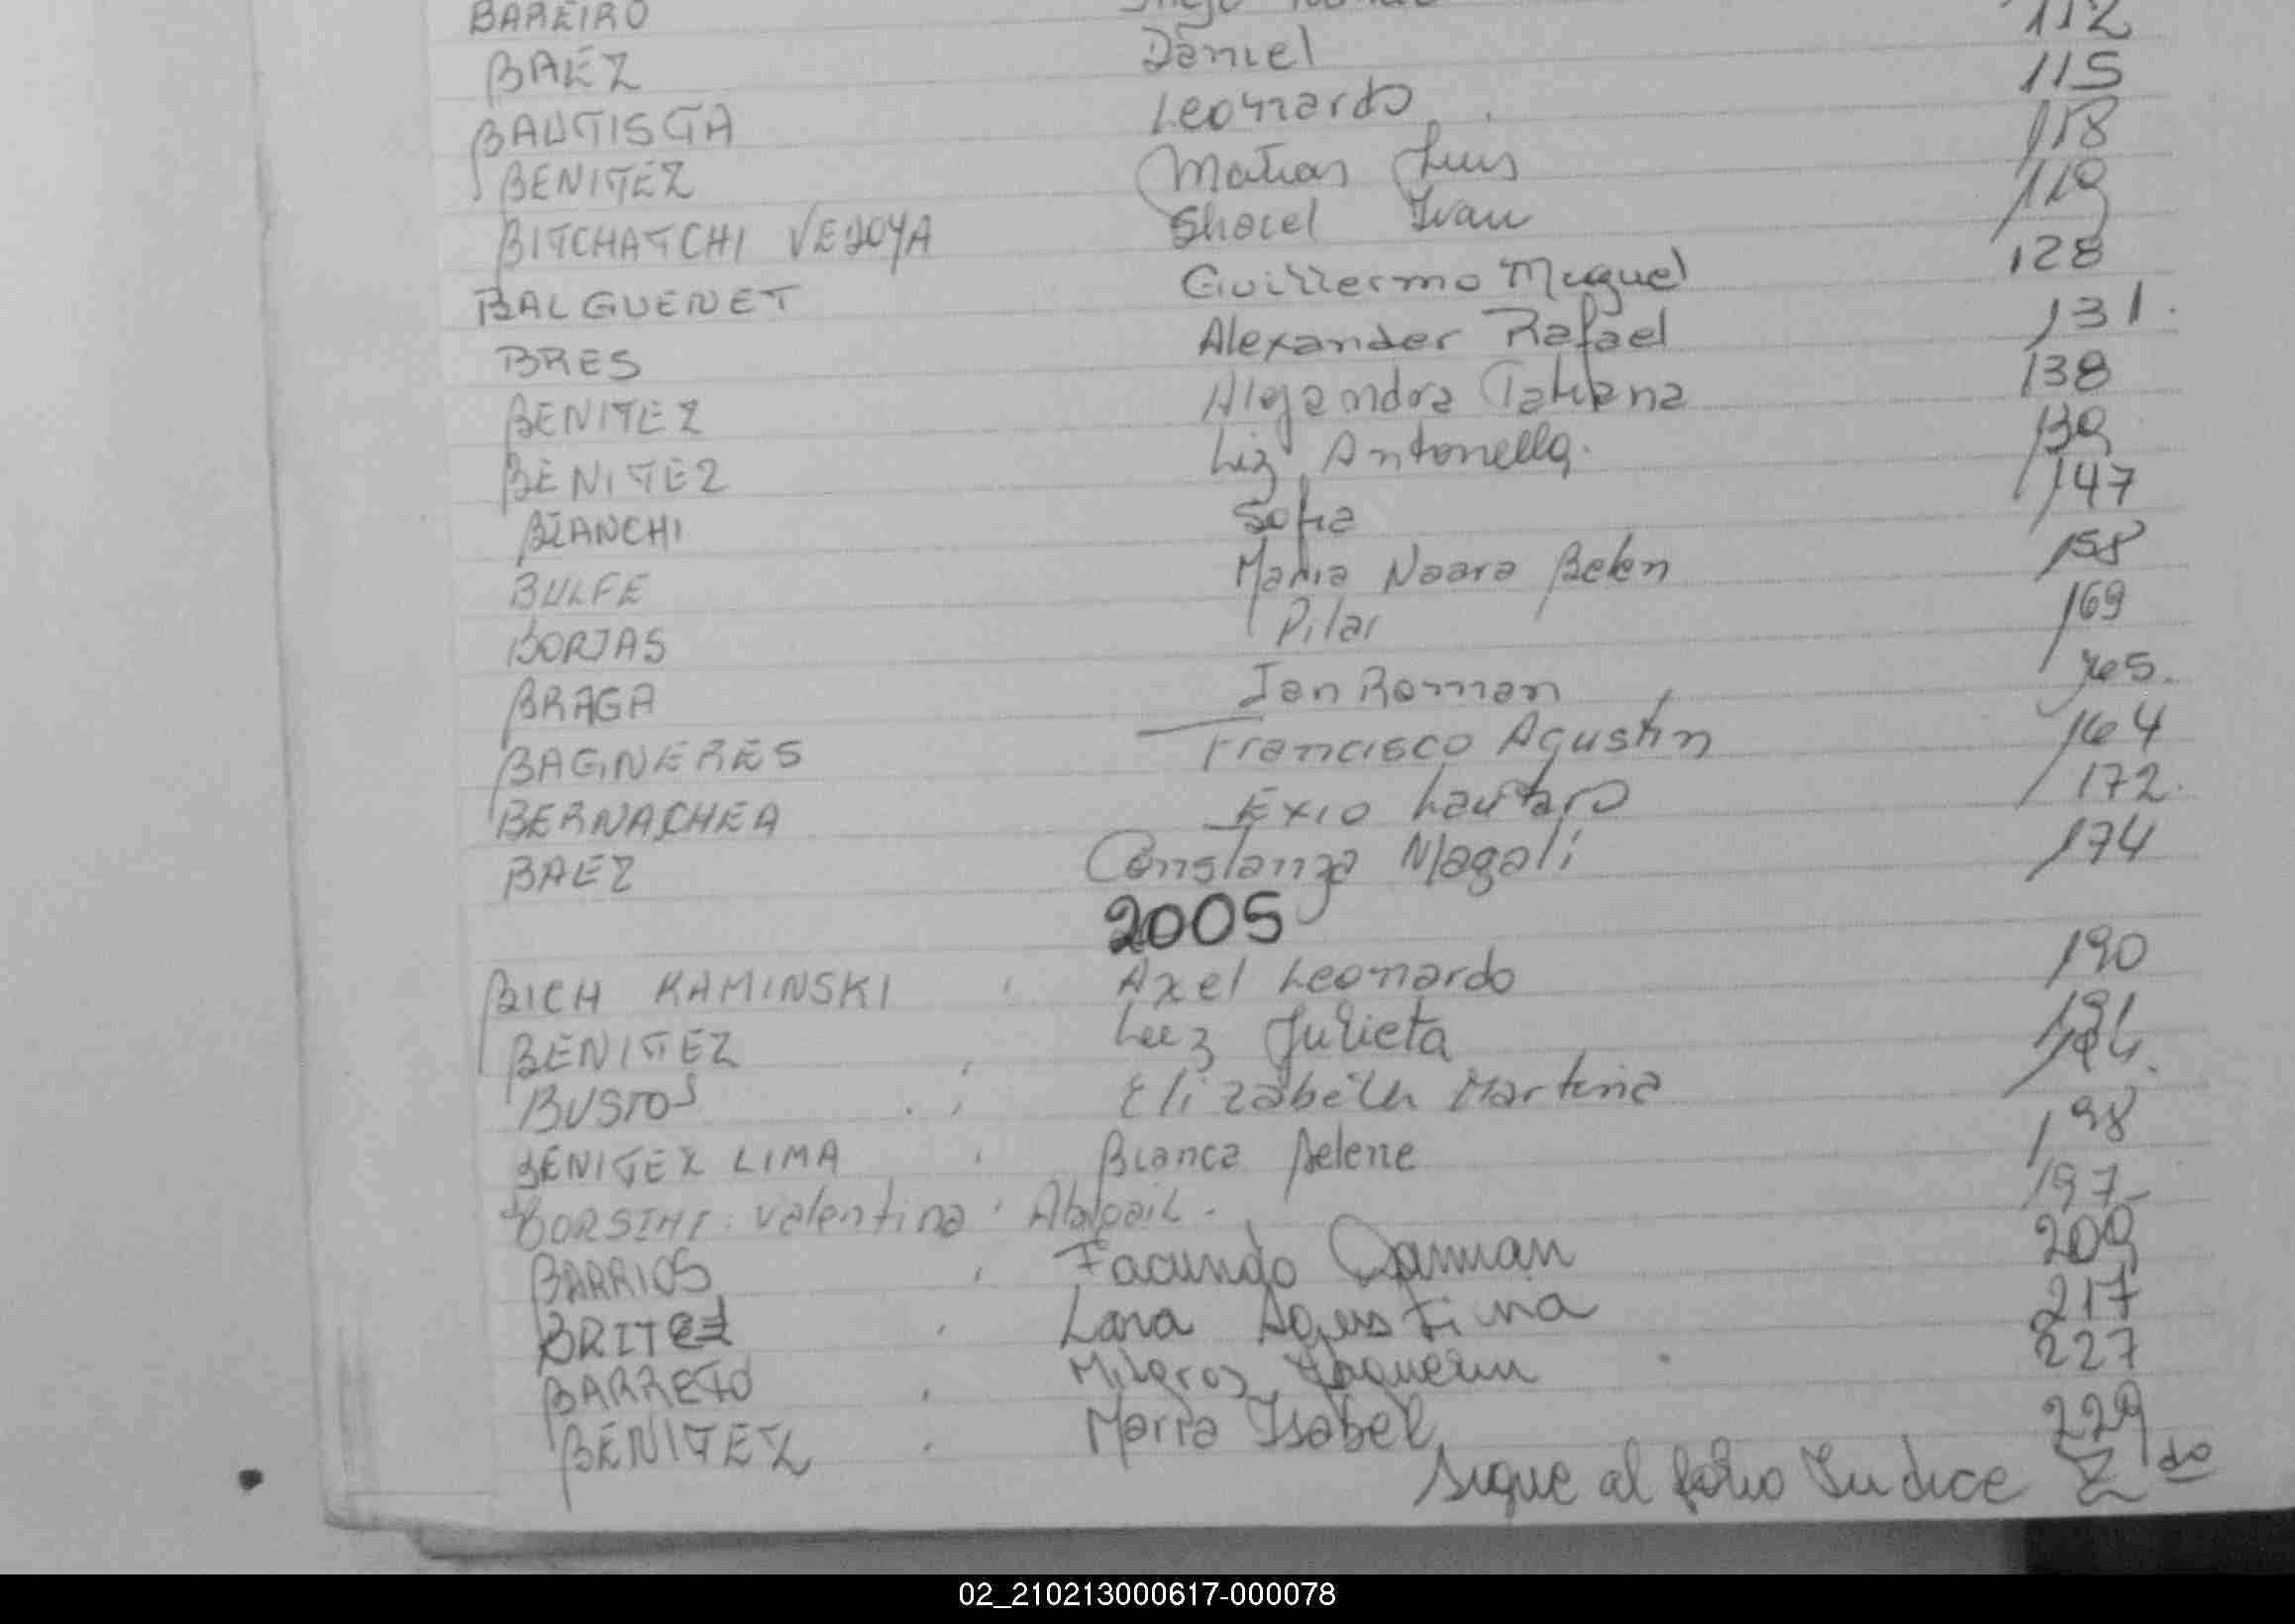 BAREIRO 112
BAEZ Daniel 115
BAUTISTA Leonardo 118
BENITEZ Matias Luis 119
BITCHATCHI VEDOYA Ivan 128
BALGUENET Guillermo Miguel 131.
BRES Alexander Rafael 138
BENITEZ Alejandra Tatiana 139
BENITEZ Liz Antonella. 147
BIANCHI Sofia 158
BULFE Maria Naara Belen 169
BORJAS Pilar 165.
BRAGA Ian Roman 164
BAGINERES Francisco Agustin 172.
BERNACHEA Exio Lautaro 174
BAEZ Constanza Magali
2005
BICH KAMINSKI Axel Leonardo 190
BENITEZ Julieta
BUSTOS Elizabeth Martina 198
BENITEZ LIMA Bianca Selene 197
BORSINI Valentina Abigail.
BARRIOS Facundo Damian 209
BRITEZ Lara Agustina 217
BARRETO Milagros 227
BENITEZ Maria Isabel 229
sigue al folio Indice 2do
02_210213000617-000078